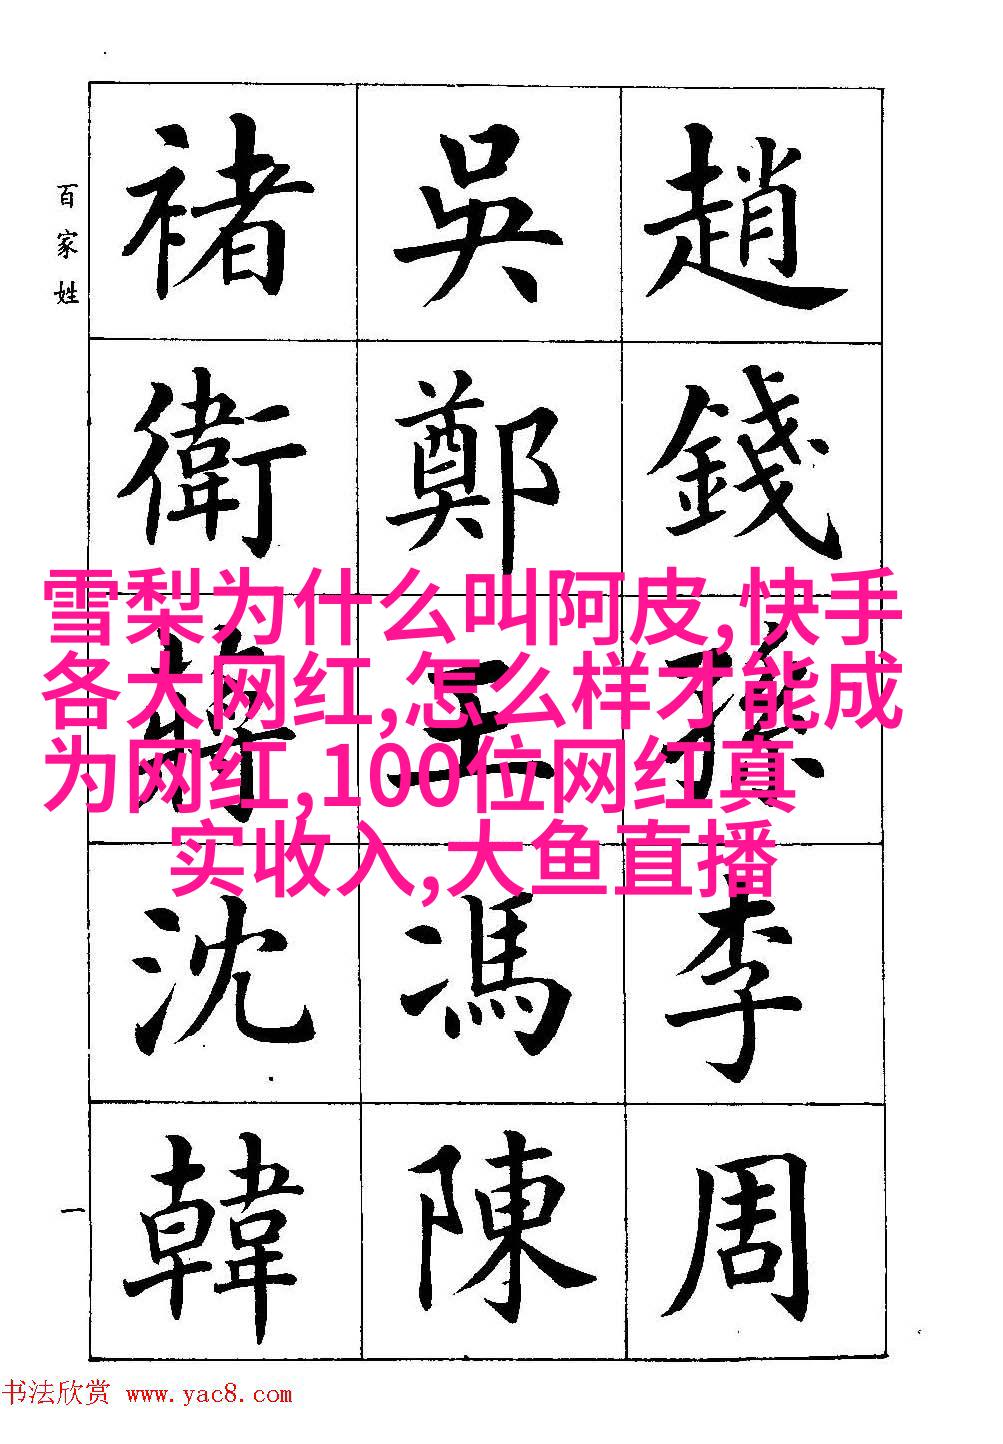 百家姓
趙錢孫李周
吳鄭王馮陳
褚衛蔣沈韓
一
雪梨为什么叫阿皮,快手
各大网红,怎么样才能成
为网红,100位网红真
实收入,大鱼直播
书法欣赏 www.yac8.com